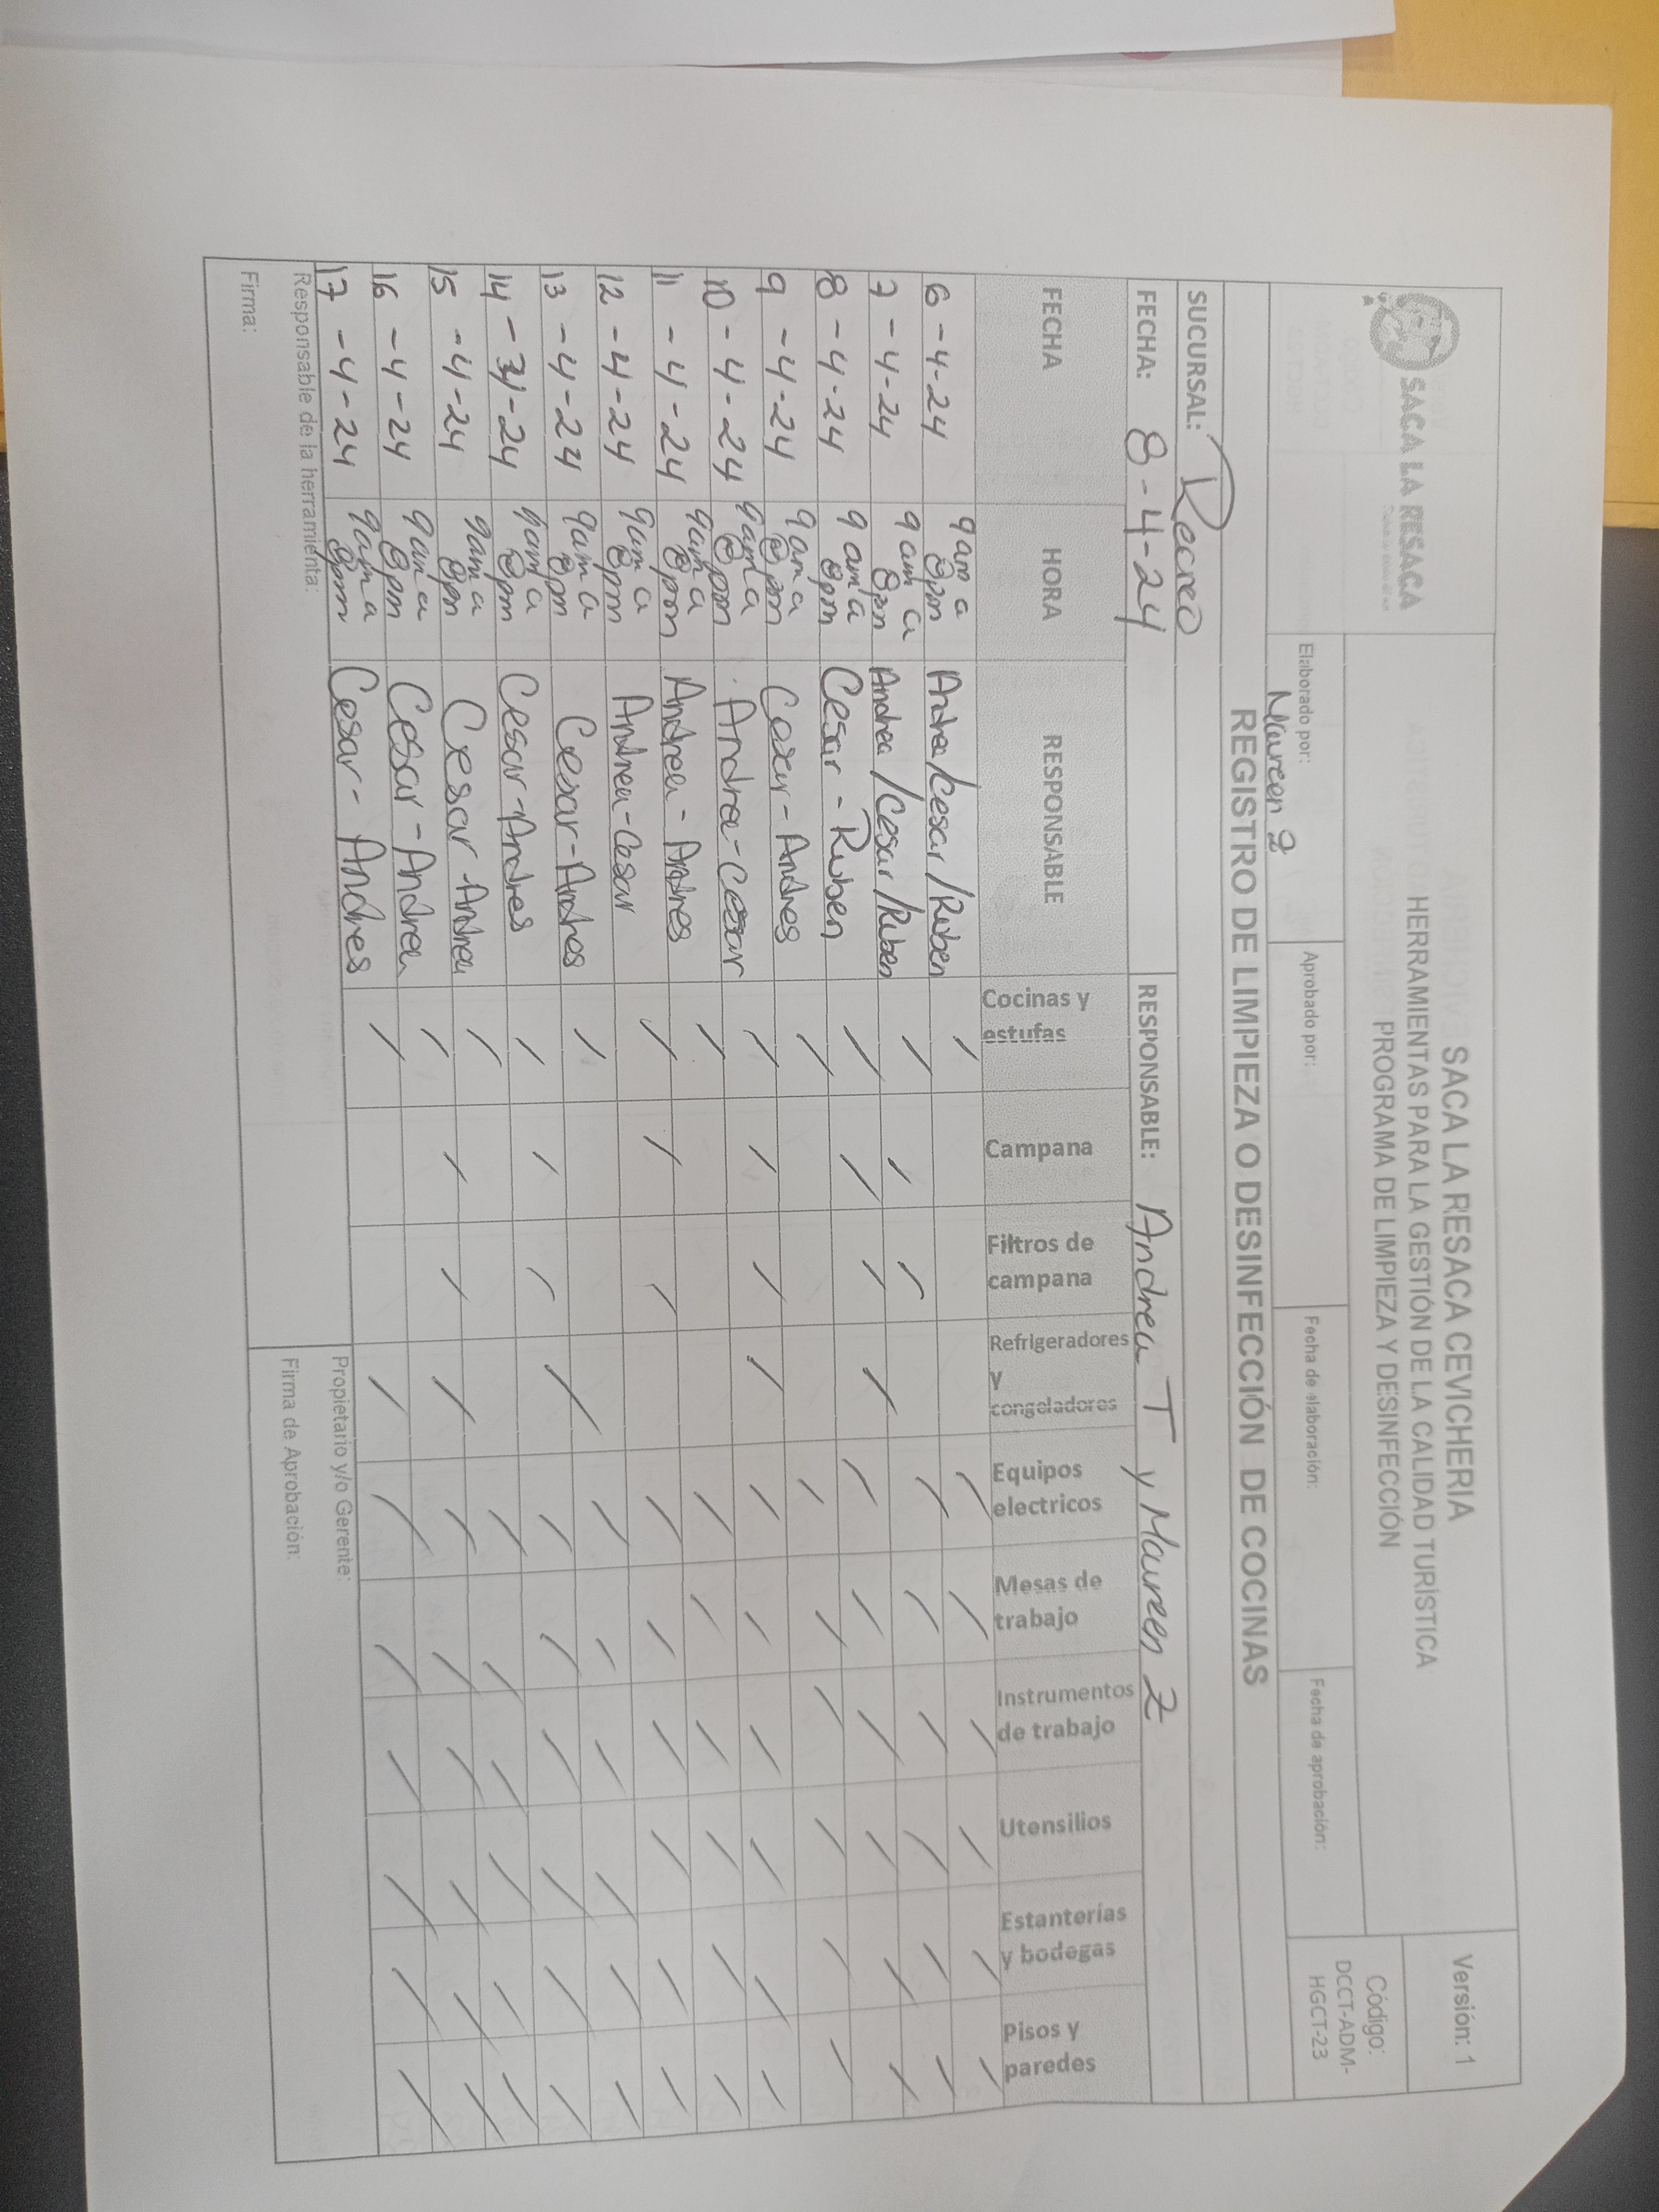 SACA LA RESACA
SACA LA RESACA CEVICHERIA
HERRAMIENTAS PARA LA GESTIÓN DE LA CALIDAD TURÍSTICA
PROGRAMA DE LIMPIEZA Y DESINFECCIÓN
Versión: 1
Código:
DCCT-ADM-
HGCT-23
Elaborado por:
Mauren Z
Aprobado por:
Fecha de elaboración:
Fecha de aprobación:
REGISTRO DE LIMPIEZA O DESINFECCIÓN DE COCINAS
SUCURSAL: Recreo
FECHA: 8-4-24 RESPONSABLE: Andrea T y Maureen Z
FECHA HORA RESPONSABLE Cocinas y estufas Campana Filtros de campana Refrigeradores y congeladores Equipos electricos Mesas de trabajo Instrumentos de trabajo Utensilios Estanterías y bodegas Pisos y paredes
6-4-24 9am a 8pm Andrea/Cesar/Ruben / / / / / / /
7-4-24 9am a 8pm Andrea/Cesar/Ruben / / / / / / / / /
8-4-24 9am a 8pm Cesar-Ruben / / / / / / / / / /
9-4-24 9am a 8pm Cesar-Andres / / / / / / /
10-4-24 9am a 8pm Andrea-Cesar / / / / / / / / / /
11-4-24 9am a 8pm Andrea-Andres / / / / / / /
12-4-24 9am a 8pm Andrea-Cesar / / / / / / / / /
13-4-24 9am a 8pm Cesar-Andres / / / / / / / /
14-4-24 9am a 8pm Cesar-Andres / / / / / / / / /
15-4-24 9am a 8pm Cesar-Andrea / / / / / / /
16-4-24 9am a 8pm Cesar-Andrea / / / / / / / / / /
17-4-24 9am a 8pm Cesar-Andres / / / / / / / /
Responsable de la herramienta:
Propietario y/o Gerente:
Firma:
Firma de Aprobación: